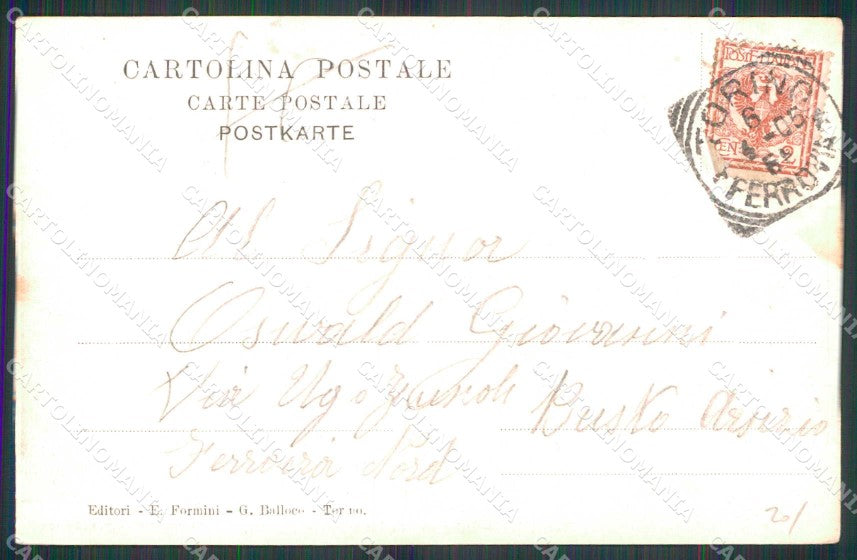 CARTOLINA POSTALE
CARTE POSTALE
POSTKARTE
POSTE
TORINO
FERROVIA
Al Signor
Oswald Giovanni
Via Ugo
Busto Arsizio
Ferrovia Nord
Editori - E. Formini - G. Balloco - Torino.
20/
CARTOLINOMANIA